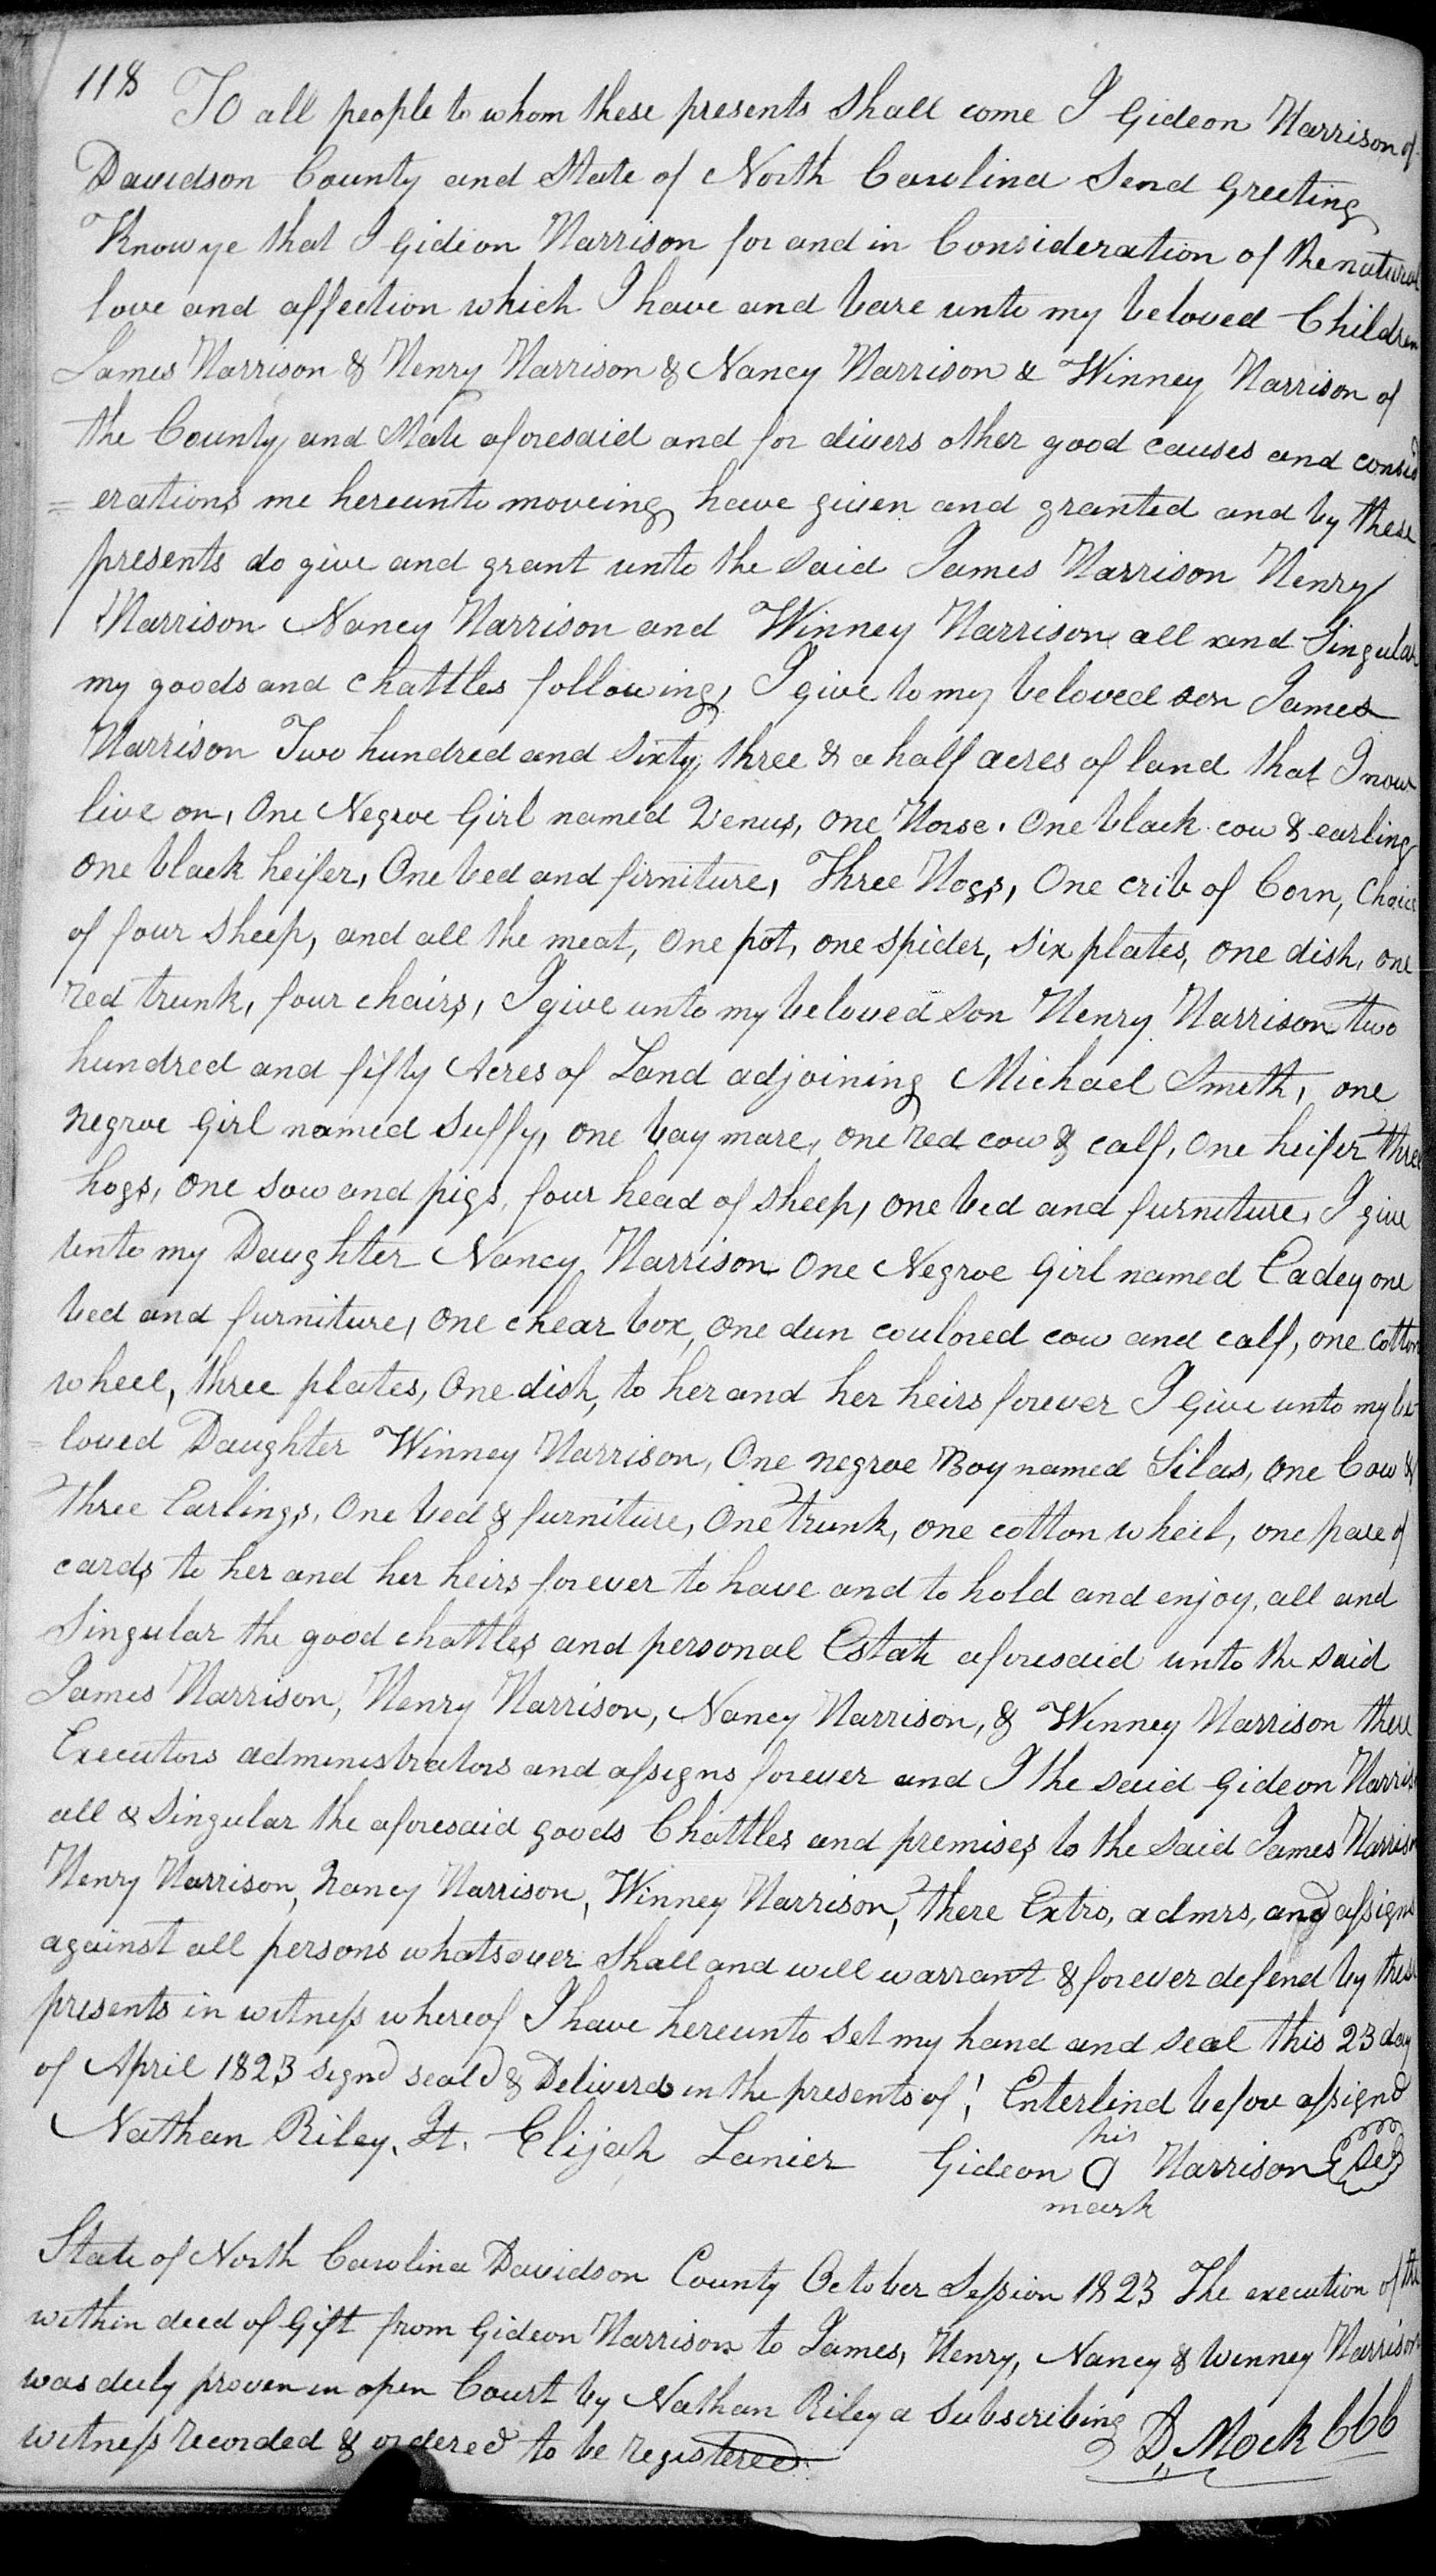 118 To all people to whom these presents Shall come I Gideon Harrison of
Davidson County and State of North Carolina Send Greeting
Know ye that I Gideon Harrison for and in Consideration of the natural
love and affection which I have and bare unto my beloved Children
James Harrison & Henry Harrison & Nancy Harrison & Winney Harrison of
the County and State aforesaid and for divers other good causes and consid
= erations me hereunto moveing have given and granted and by these
presents do give and grant unto the Said James Harrison Henry
Harrison Nancy Harrison and Winney Harrison all and Singular
my goods and chattles following, I give to my beloved son James
Harrison Two hundred and Sixty three & a half acres of land that I now
live on, One Negroe Girl named Venus, one Horse. One black cow & earling
one black heifer, One bed and firniture, Three Hogs, One crib of Corn, Choice
of four sheep, and all the meat, one pot, one spider, six plates, one dish, one
red trunk, four chairs, I give unto my beloved son Henry Harrison two
hundred and fifty Acres of Land adjoining Michael Smith, one
negroe Girl named Suffy, one bay mare, one red cow & calf, one heifer three
hogs, one sow and pigs, four head of sheep, one bed and furniture, I give
unto my Daughter Nancy Harrison One Negroe Girl named Eadey one
bed and furniture, one chear box, one dun coulored cow and calf, one cotton
wheel, three plates, One dish, to her and her heirs forever I Give unto my be
= loved Daughter Winney Harrison, One negroe Boy named Silas, one Cow &
Three Earlings, One bed & furniture, One trunk, one cotton wheel, one pare of
cards to her and her heirs forever to have and to hold and enjoy, all and
Singular the good chattles and personal Estate aforesaid unto the said
James Harrison, Henry Harrison, Nancy Harrison, & Winney Harrison there
Executors administrators and assigns forever and I the said Gideon Harrison
all & Singular the aforesaid goods Chattles and premises to the said James Harrison
Henry Harrison, Nancy Harrison, Winney Harrison, there Extrs, admrs, and assigns
against all persons whatsover Shall and will warrant & forever defend by these
presents in witness whereof I have hereunto set my hand and seal this 23 day
of April 1823 signd seald & Deliverd in the presents of, Enterlind before assignd
Nathan Riley, Jt. Elijah Lanier Gideon his mark Harrison Seal
State of North Carolina Davidson County October Session 1823 The execution of the
within deed of Gift from Gideon Harrison to James, Henry, Nancy & Winney Harrison
was duly proven in open Court by Nathan Riley a Subscribing
witness recorded & ordered to be registered D. Mock CCC